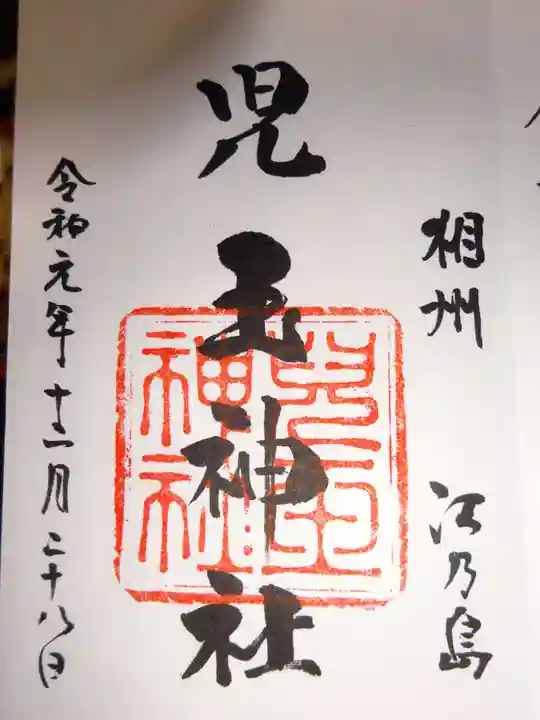 相州 江乃島
児玉神社
兒玉神社
令和元年十二月二十八日